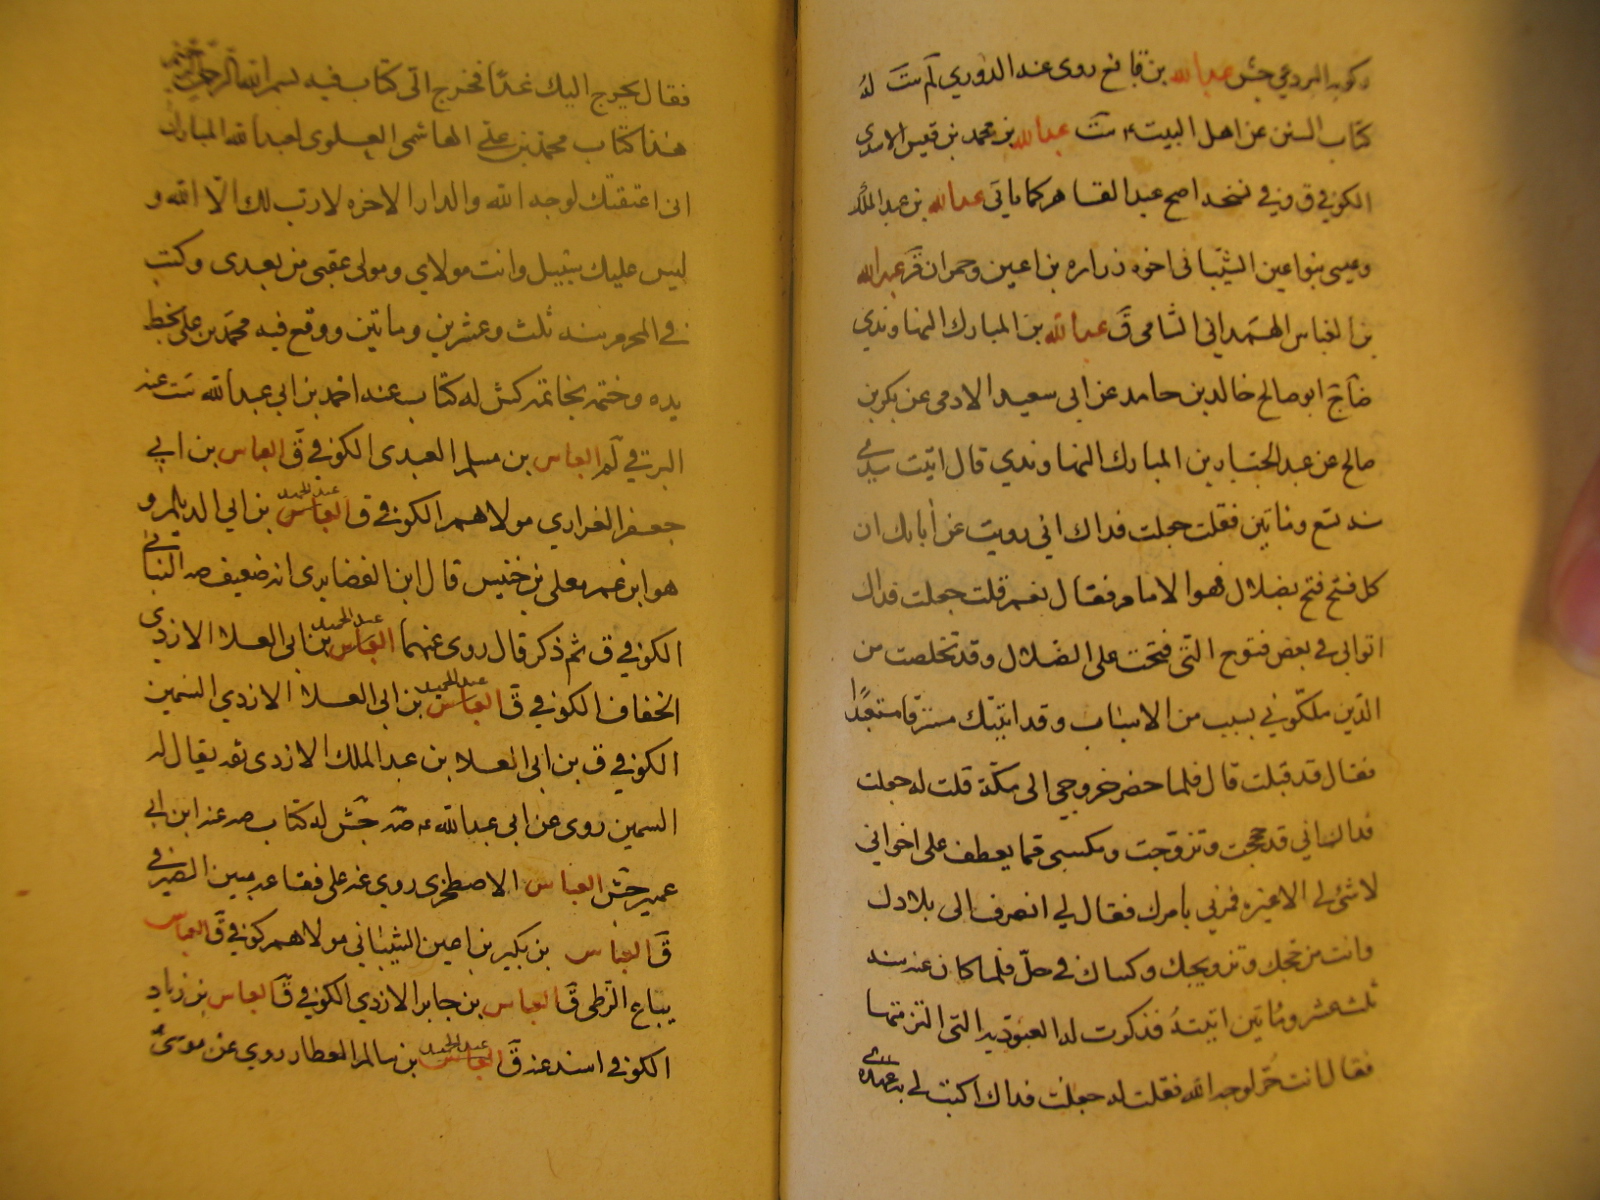 دكويه البردعي جش عبدالله بن قانع روى عنه الدوري لم ست له
كتاب السنن عن اهل البيت ع ست عبدالله بن محمد بن قيس الاسدي
الكوفي ق وفي نسخه اصح عبد القاهر كما ياتى عبدالله بن عبد الملك
وعيسى بنو اعين الشيباني اخوه زراره بن اعين وحمران قر عبدالله
بن العباس الهمداني الشامي ق عبدالله بن المبارك النهاوندي
ضا ج ابو صالح خالد بن حامد عن ابي سعيد الادمي عن بكر بن
صالح عن عبد الجبار بن المبارك النهاوندي قال اتيت سيدي
سنه تسع ومأتين فقلت جعلت فداك اني رويت عن أبائك ان
كل فتح فتح بضلال فهو الامام فقال نعم قلت جعلت فداك
اتوا بي في بعض فتوح التى فتحت على الضلال وقد تخلصت من
الذين ملكوني بسبب من الاسباب وقد اتيتك مسترقا مستعبدا
فقال قد قبلت قال فلما حضر خروجي الى مكة قلت له جعلت
فداك اني قد حججت وتزوجت ومكسبي مما يعطف على اخواني
لا شئ لي الا غيره فمرني بامرك فقال لي انصرف الى بلادك
وانت من حجك وتزويجك وكسبك في حل فلما كان عند سنه
ثلث عشر ومأتين اتيته فذكرت له العبودية التى التزمتها
فقال انت حر لوجه الله فقلت له جعلت فداك اكتب لي به عهده
فقال يخرج اليك غدا فخرج الى كتاب فيه بسم الله الرحمن الرحيم
هذا كتاب محمد بن على الهاشمى العلوى لعبدالله المبارك
انى اعتقتك لوجه الله والدار الاخره لا رب لك الا الله و
ليس عليك سبيل وانت مولاي ومولى عقبى من بعدى وكتب
في المحرم سنه ثلث وعشرين وماتين ووقع فيه محمد بن على بخط
يده وختمه بخاتمه كش له كتاب عنه احمد بن ابي عبدالله ست عنه
البرقي لم العباس بن مسلم العبدى الكوفي ق العباس بن ابي
جعفر الفزاري مولاهم الكوفي ق العباس عبد الحميد بن ابي الديلم و
هو ابن عم معلى بن خنيس قال ابن الغضايرى انه ضعيف صه النبالي
الكوفي ق ثم ذكر قال روى عنهما العباس عبد الحميد بن ابى العلا الازدي
الخفاف الكوفي ق العباس عبد الحميد بن ابى العلا الازدي السمين
الكوفي ق بن ابى العلا بن عبد الملك الازدى ثقه يقال له
السمين روى عن ابي عبدالله ع صه جش له كتاب صه عنه ابن ابي
عمير جش العباس الاصطخرى روى عنه على فقاعه مبين الصيرفي
ق العباس بن بكير بن اعين الشيباني مولاهم كوفي ق العباس
بياع الزطى ق العباس بن جابر الازدي الكوفي ق العباس بن زياد
الكوفي اسند عنه ق العباس عبد الحميد بن سالم العطار روي عن موسى